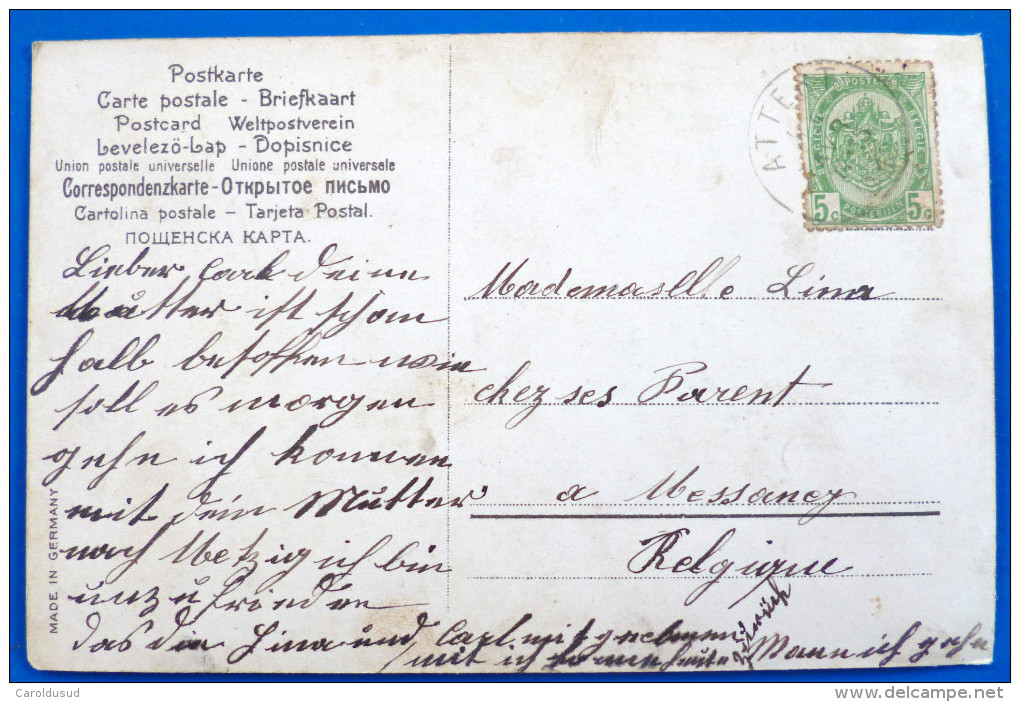 Postkarte
Carte postale - Briefkaart
Postcard Weltpostverein
Levelező-Lap - Dopisnice
Union postale universelle Unione postale universale
Correspondenzkarte - Открытое письмо
Cartolina postale - Tarjeta Postal.
ПОЩЕНСКА КАРТА.
ATTE
POSTES
BELGIQUE
BELGIE
5c POSTERIJEN 5c
Lieber Carl deine
Mutter ist schon
halb besoffen wie
soll es morgen
gehn ich kommen
mit dein Mutter
nach Metzig ich bin
unzufrieden
das du Lina und Carl mit genehmen
mit ich heute zurück Mann ich gehn
Mademaslle Lina
chez ses Parent
a Messancy
Belgique
MADE IN GERMANY
Caroldusud
delcampe.net